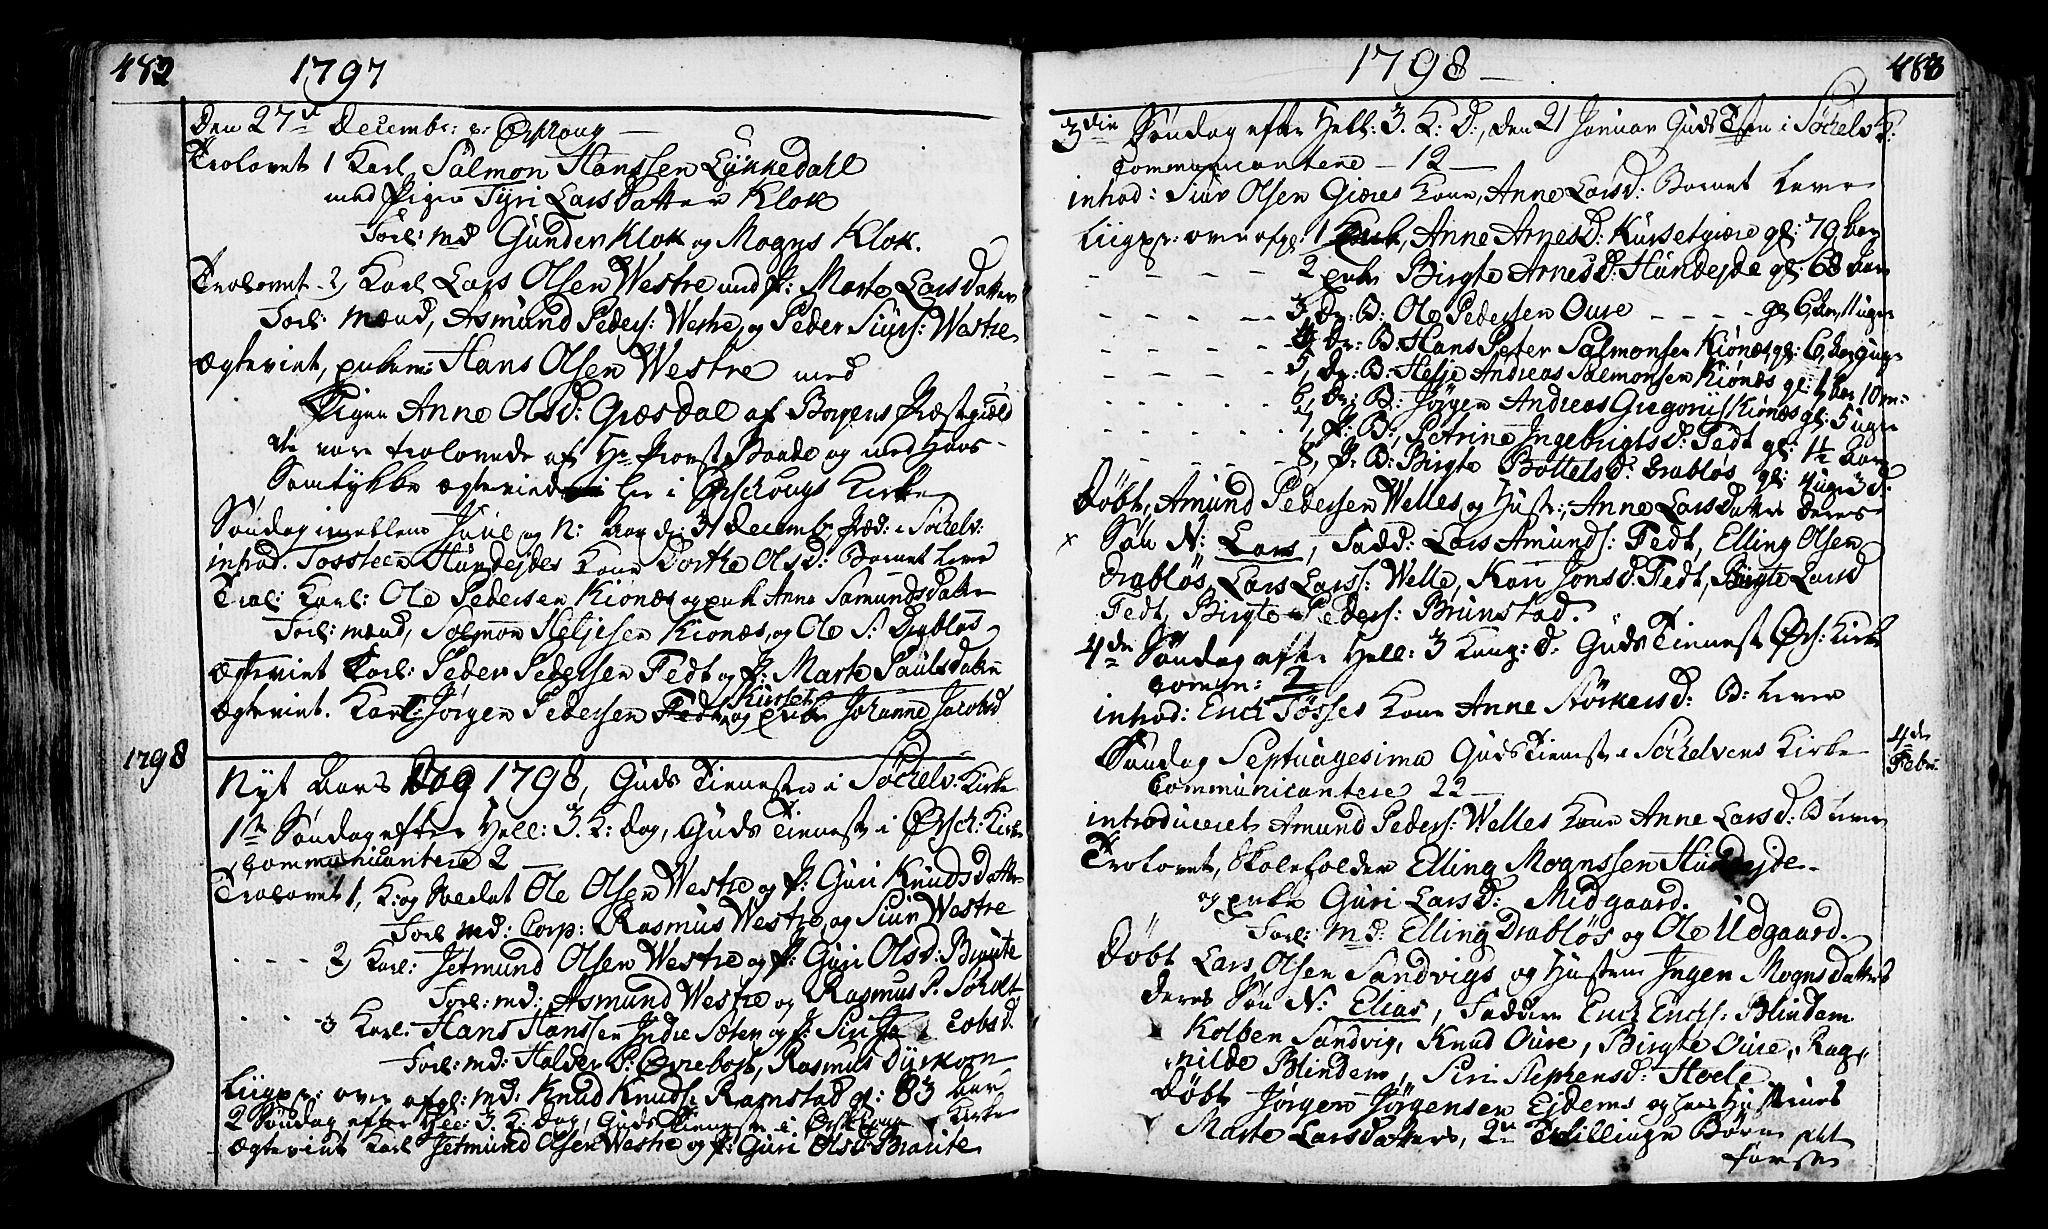 482 1797
Den 27de Decembr: i Ørschoug
Trolovet 1 Karl Salmon Hanssen Lykkedahl
med Pigen Tyri Lars Datter Klok
Forl: md Gunder Klok og Mogns Klok.
Trolovet 2, Karl Lars Olsen Westre med P: Marte Lars Datter
Forl: Mænd, Asmund Peders: Westre, og Peder Siurs: Westre
Ægteviet, enkem: Hans Olsen Westre med
Pigen Anne Olsd: Græsdal af Borgens Præstegield
de vare trolovede af Hr Provst Baade og med Hans
Samtykke ægteviede her i Ørschougs Kirke
Søndag imellem Juul og N: Aar d: 31 Decemb, Præd: i Søchelv:
introd. Tossteen Hundejdes Kone Dorthe Olsd: Barnet lever
Trol: Karl: Ole Pedersen Kionæs og enke Anne Samundsdatter
Forl: mænd, Solmon Heljesen Kionæs, og Ole P: Drabløs
Ægteviet Karl: Peder Pedersen Fedt og P: Marte Paulsdatter
Ægteviet. Karl: Jørgen Pedersen Kurset og enke Johanne Jacobsd
1798
Nyt Aars Dag 1798, Guds Tieneste i Søchelv: Kirke
1te Søndag efter Hell: 3. K: dag, Guds Tieneste i Ørsch: Kirke
Communicantere 2
Trolovet 1, K: og Soldat Ole Olsen Westre og P: Guri Knuds Datter
Forl md: Corp: Rasmus Westre, og Siur Westre
- - - 2, Karl: Jetmund Olsen Westre og P: Guri Olsd: Braute
Forl: md: Asmund Westre og Rasmus P. Søholt
- - - 3 Karl: Hans Hanssen Indre Sæter og P: Siri Jacobsd.
Forl: md: Halder P: Ørrebost, Rasmus Dyrkorn
Liigpr: over afgl: md: Knud Knuds: Ramstad gl: 83 Aar
2 Søndag efter Hell: 3. K: dag, Guds Tieneste i Ørschoug Kirke
Ægteviet Karl Jetmund Olsen Westre og P: Guri Olsd: Braute
1798 483
3die Søndag efter Hell: 3. K: D:, den 21 Januar Guds Tien i Søchelv K:
Communicantere - 12 -
introd: Siur Olsen Giæres Kone, Anne Larsd: Barnet lever
Liigpr: over afgl: 1 Enke, Anne Arnesd: Kursetgiære gl: 79 Aar
- - - - 2 enke Birgte Arnesd: Hundejde gl: 68 Aar
- - - - 3, Dr: B: Ole Pedersen Oure - - - gl 6 Aar 11 uger
- - - - 4 Dr: B: Hans Peter Salmonsen Kionæs gl: 6 Aar 9 uger
- - - - 5, Dr: B: Helje Andreas Salmonsen Kionæs gl: 1 Aar 10 m:
- - - - 6, Dr: B: Jørgen Andreas Gregoriis: Kionæs gl: 5 uger
- - - - 7, P: B:, Petrine Ingebrigtsd: Fedt gl: 1½ Aar
- - - - 8, P: B: Birgte Bottelsd: Drabløs gl: 4 uger 3 d:
Døbt, Amund Pedersen Welles og Hustr:, Anne Larsdatter deres
x Søn N: Lars, Fadd: Lars Amunds: Fedt, Elling Olsen
Drabløs, Lars Larss: Welle, Kari Jonsd: Fedt, Birgte Larsd
Fedt, Birgte Peders: Brunstad.
4de Søndag efter Hell: 3 Kong: D: Guds Tieneste Ørs: Kirke
comm: 2
introd: Erich Tosses Kone Anne Størkersd: B: lever
Søndag Septuagesima Guds Tieneste i Søchelvens Kirke
4de Febr:
Communicantere 22 -
introduceret Amund Peders: Welles Kone Anne Larsd: B lever
Trolovet, Skoleholder Elling Mognssen Hundejde
og enke Guri Larsd: Midgaard.
Forl: Md: Elling Drabløs og Ole Udgaard.
Døbt Lars Olsen Sandvigs og Hustrue Ingen Mogns Datters
deres Søn N: Elias, Faddere Erich Erichs: Blindem
Kolben Sandvig, Knud Oure, Birgte Oure, Rag-
nilde Blindem, Siri Stephensd: Hoele
Døbt Jørgen Jørgensen Ejdems og hans Hustrues
Marte Larsdatters, 2de Tvillinge Børn det
første